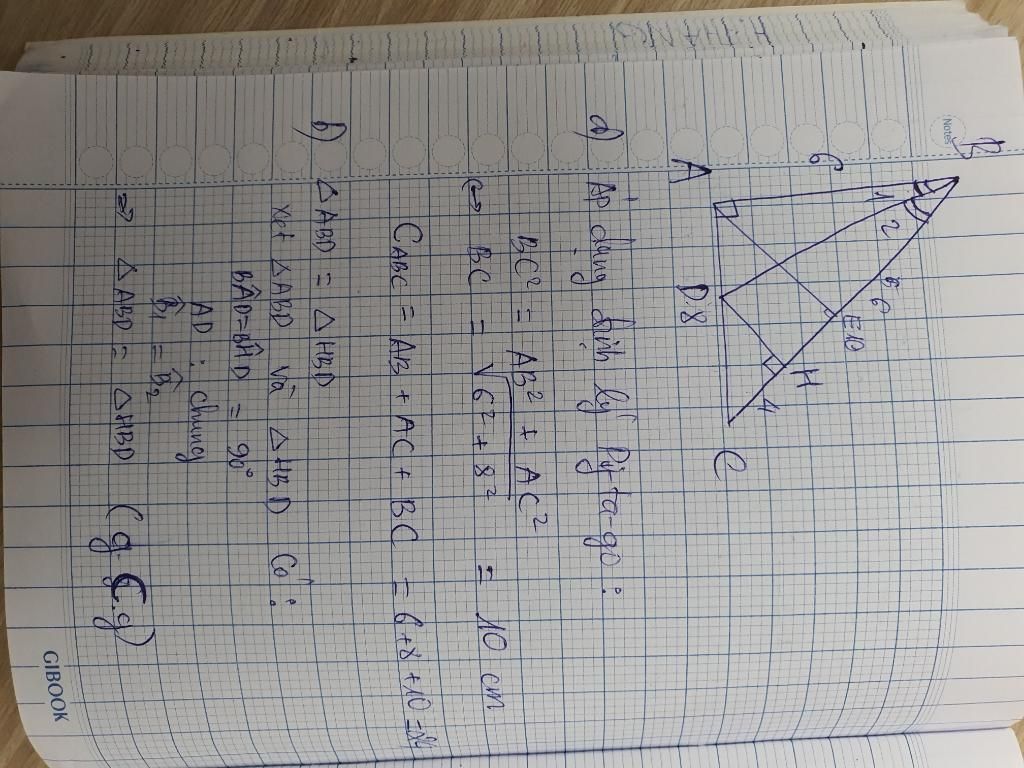 Notes
B
6
1
2
6
E
10
H
4
A
D
8
C
a) Áp dụng định lý Py-ta-go :
BC² = AB² + AC²
↔ BC = √6² + 8² = 10 cm
CABC = AB + AC + BC = 6 + 8 + 10 = 24
b) △ABD = △HBD
Xét △ABD và △HBD Có :
BÂD = BĤD = 90°
AD : chung
B̂1 = B̂2
⇒ △ABD = △HBD (g.c.g)
GIBOOK